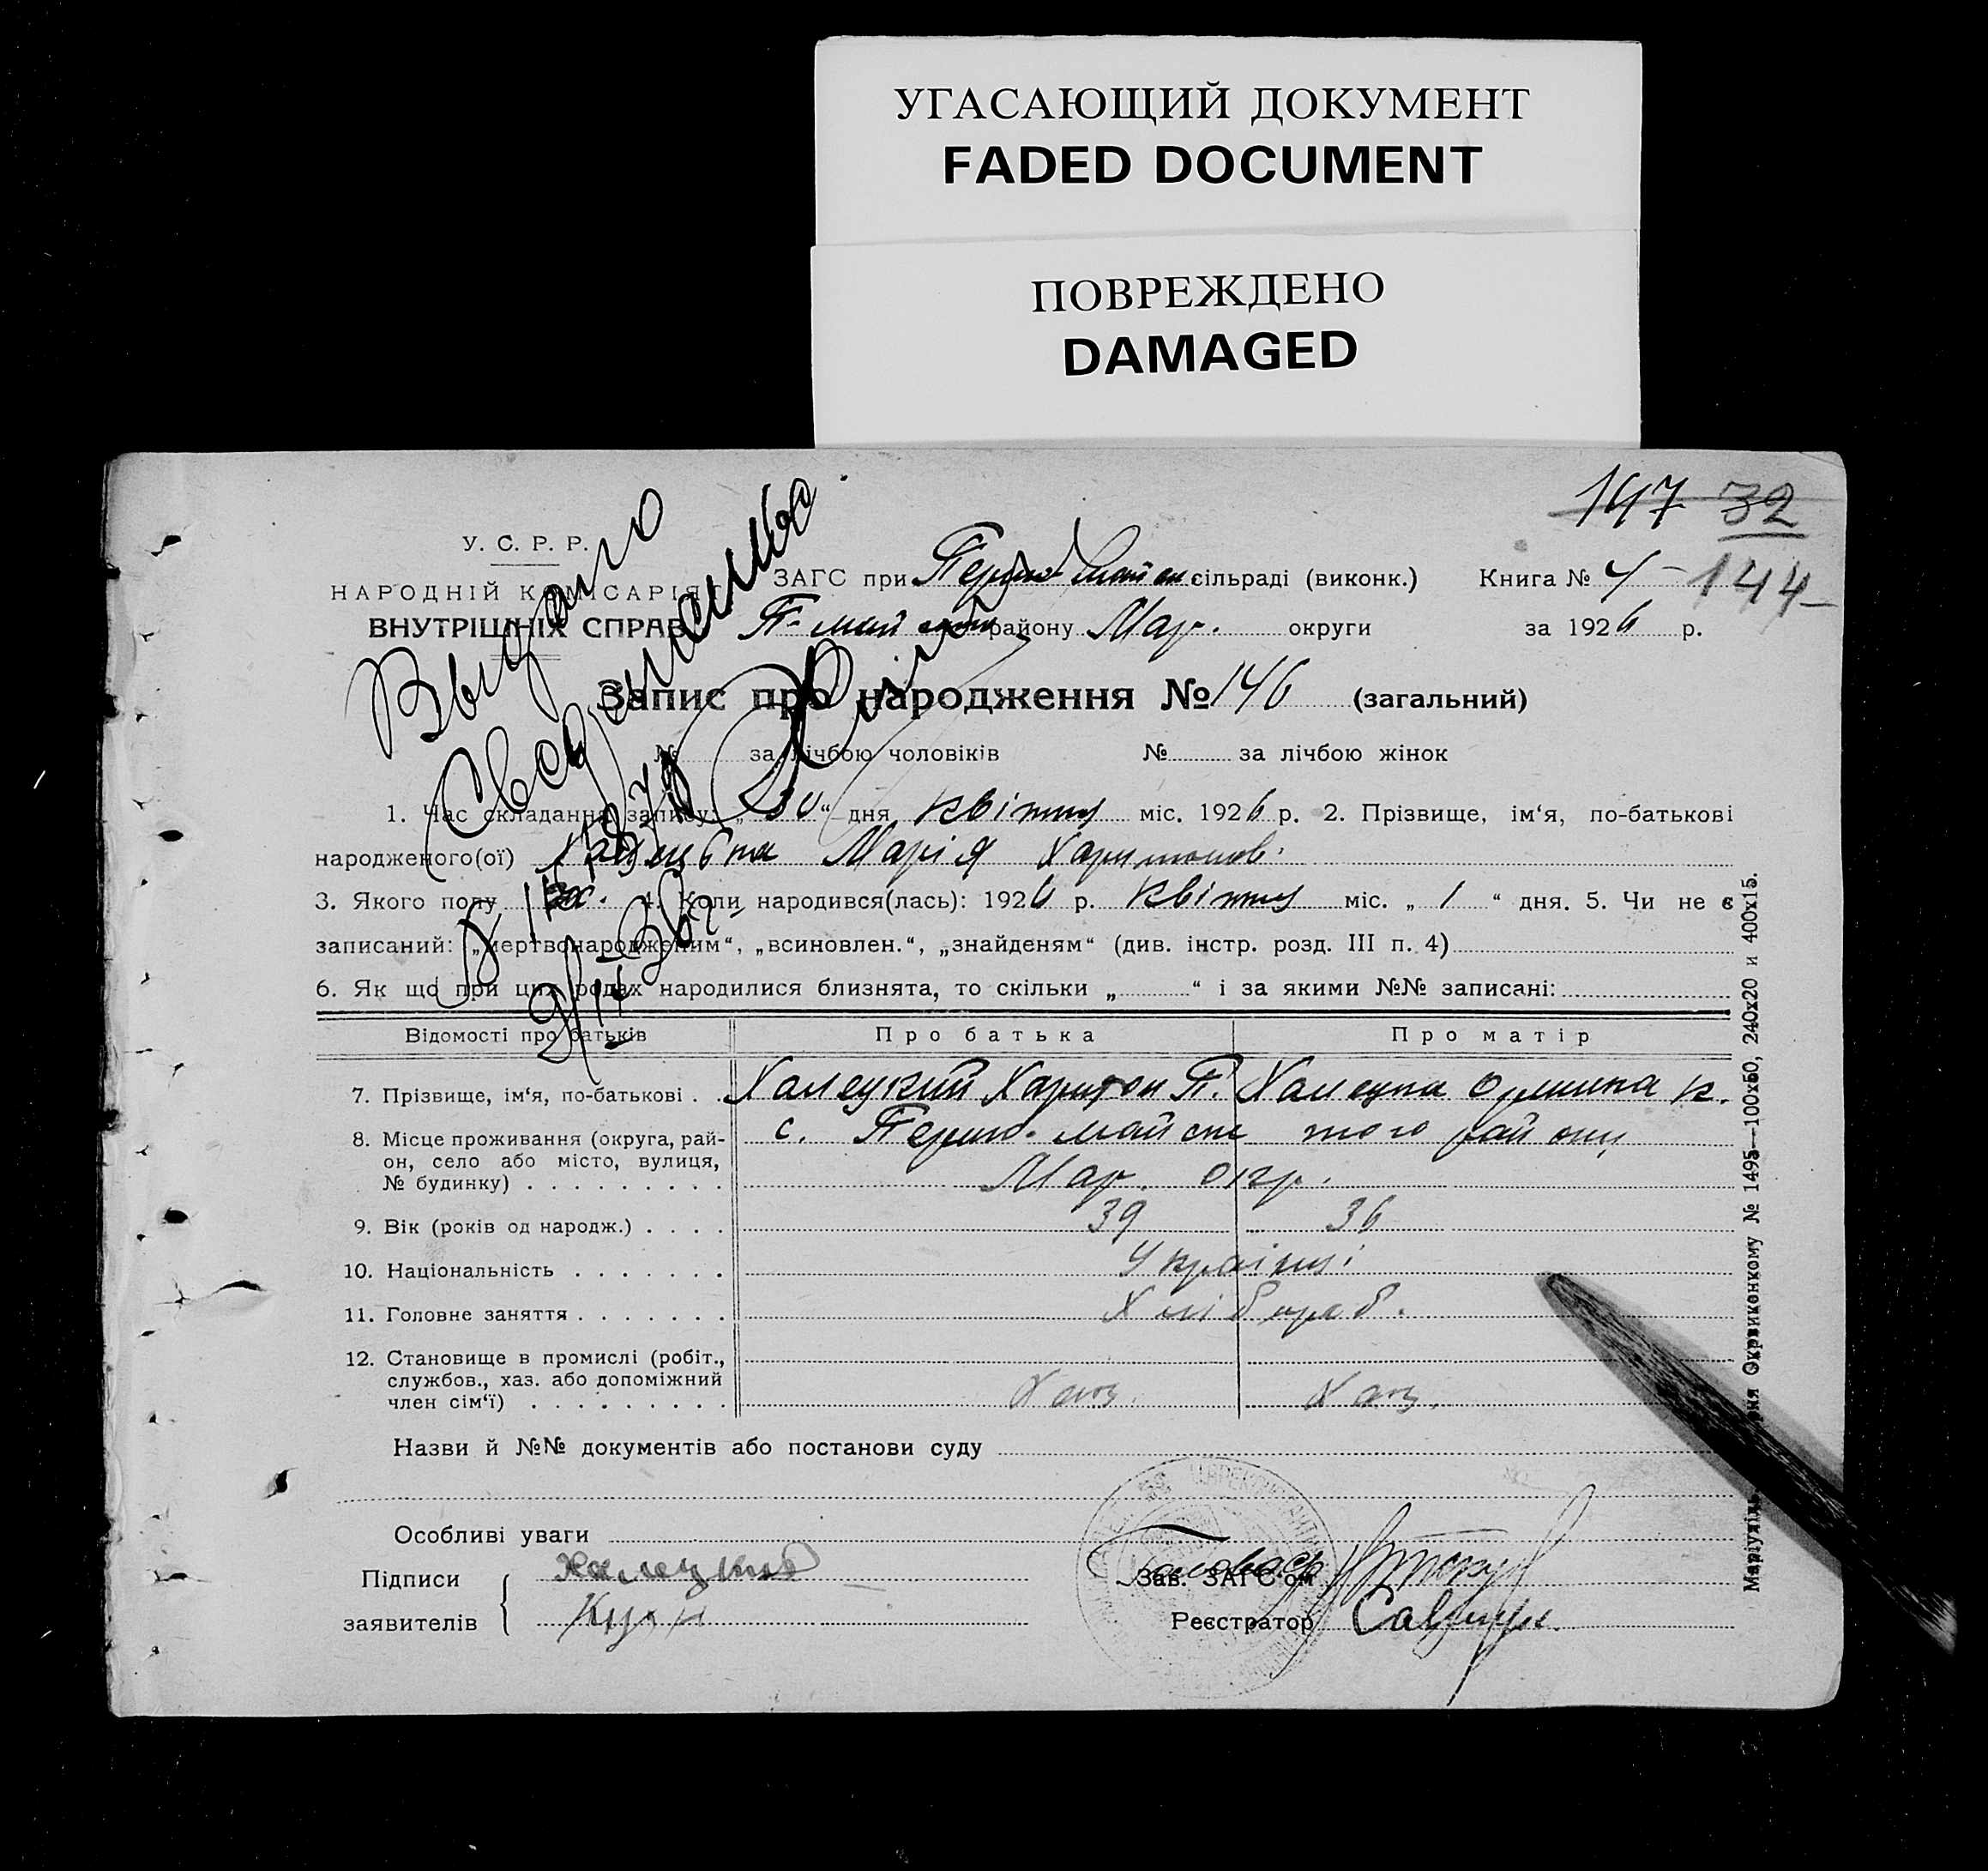 УГАСАЮЩИЙ ДОКУМЕНТ
FADED DOCUMENT
ПОВРЕЖДЕНО
DAMAGED
147 32
У. С. Р. Р.
НАРОДНІЙ КОМІСАРІЯТ
ВНУТРІШНІХ СПРАВ
ЗАГС при Першо майськ сільраді (виконк.) Книга № 4 - 144
П- май району Мар. округи за 1926 р.
Запис про народження № 146 (загальний)
№ за лічбою чоловіків № за лічбою жінок
Выдано
1. Час складання запису: „ 30 “ дня квітня міс. 1926 р. 2. Прізвище, ім‘я, по-батькові
народженого(ої) Халецька Марія Харитонов.
3. Якого полу 4. Коли народився(лась): 1926 р. квітня міс. „ 1 “ дня. 5. Чи не є
записаний: „мертвонародженим“, „всиновлен.“, „знайденям“ (див. інстр. розд. III п. 4)
6. Як що при цих родах народилися близнята, то скільки „ “ і за якими №№ записані:
Відомості про батьків Про батька Про матір
7. Прізвище, ім‘я, по-батькові . . Халецкий Харитон П. Халецка к.
8. Місце проживання (округа, рай-
он, село або місто, вулиця,
№ будинку) . . . . . . . . .
с. Першо-майськ того району
Мар. окр.
9. Вік (років од народж.) . . . . 39 36
10. Національність . . . . . . . Українці
11. Головне заняття . . . . . . . Хлібороб.
12. Становище в промислі (робіт.,
службов., хаз. або допоміжний
член сім‘ї) . . . . . . . . . Хаз. Хаз.
Назви й №№ документів або постанови суду
Особливі уваги
Підписи Халецкий
заявителів
Зав. ЗАГС‘ом
Реєстратор
№ 1495—100х50, 240х20 и 400х15.